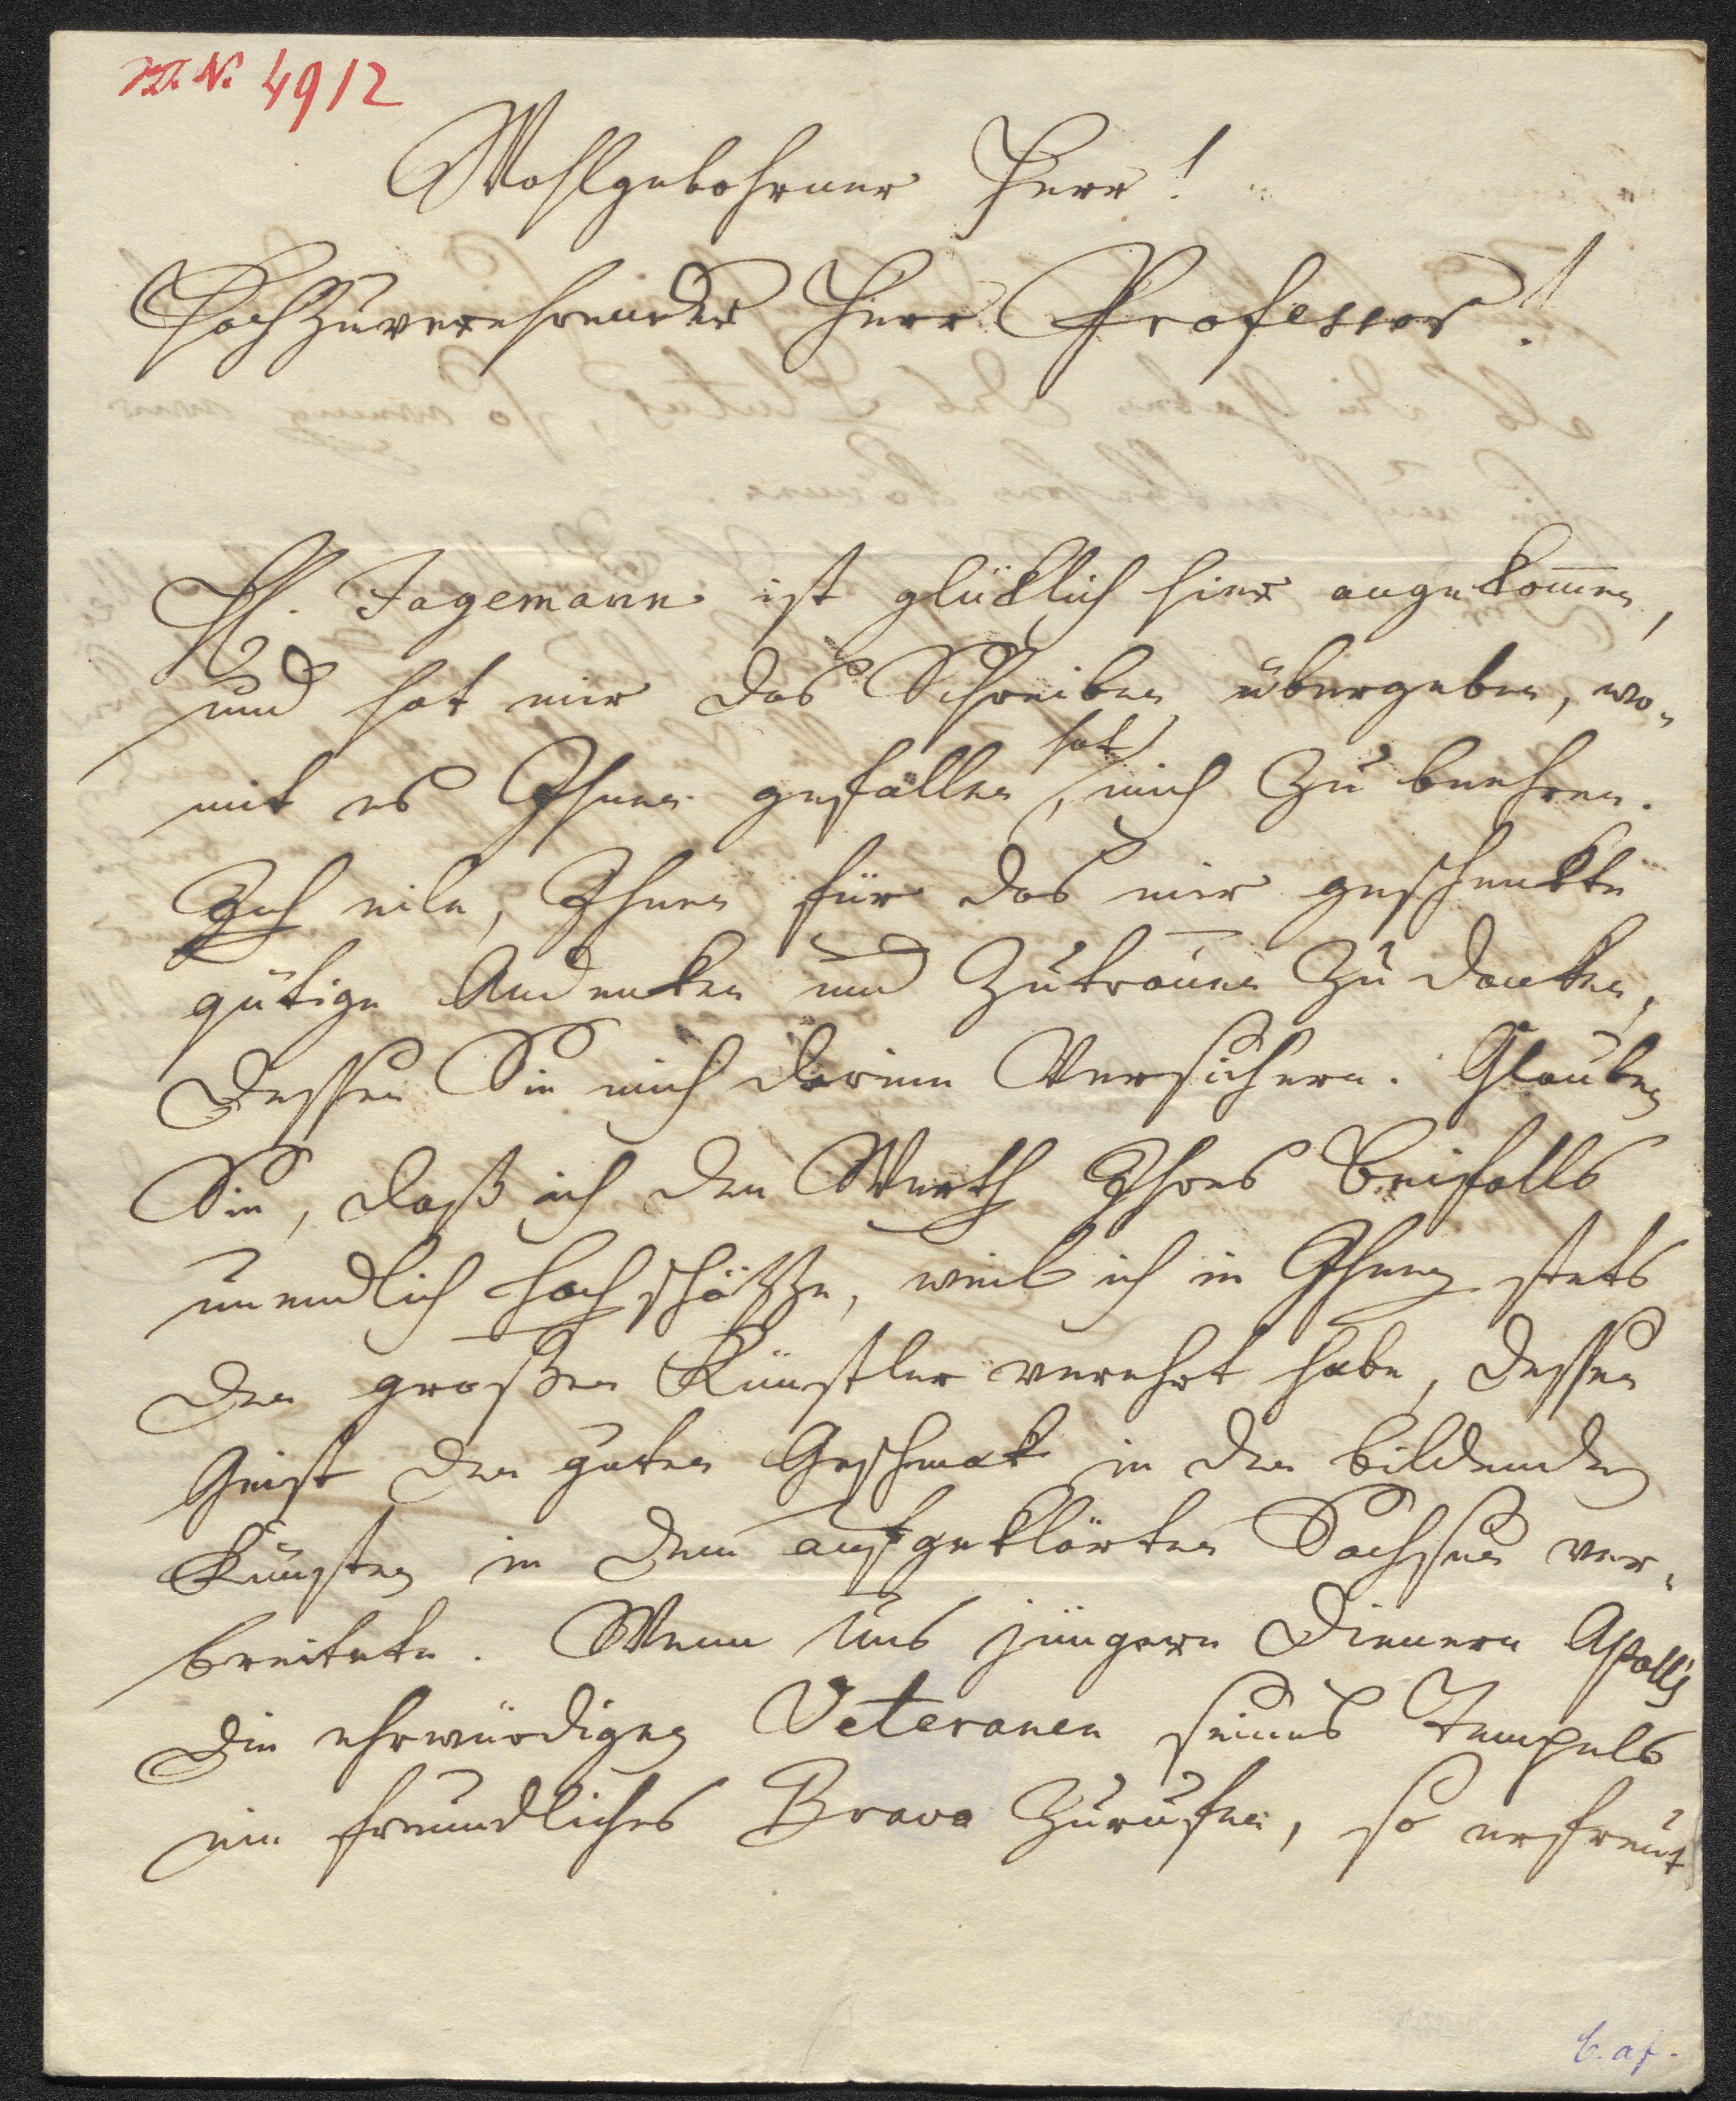 J. N. 4912
Wohlgebohrner Herr!
Hochzuverehrender Herr Professor!
H. Jagemann ist glüklich hier angekom̄en,
und hat mir das Schreiben übergeben, wo-
mit es Ihnen gefallen hat, mich zu beehren.
Ich eile, Ihnen für das mir geschenkte
gütige Andenken und Zutrauen zu danken,
dessen Sie mich darinn versichern. Glauben
Sie, daß ich den Werth Ihres Beifalls
unendlich hochschätze, weil ich in Ihnen stets
den großen Künstler verehrt habe, dessen
Geist den guten Geschmak in den bildenden
Künsten in dem aufgeklärten Sachsen ver-
breitete. Wenn uns jüngern Dienern Apoll's
die ehrwürdigen Veteranen seines Tempels
ein freundliches Bravo zurufen, so erfreut